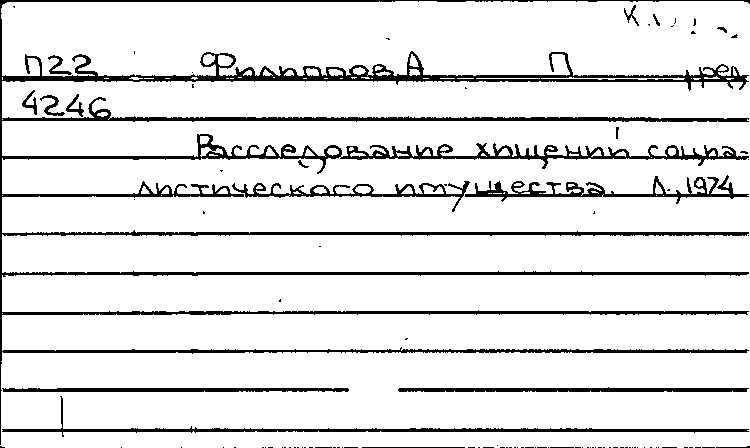 П22 Филиппов, А П , ред
4246
Расследование хищений социа-
листического имущества. Л., 1974